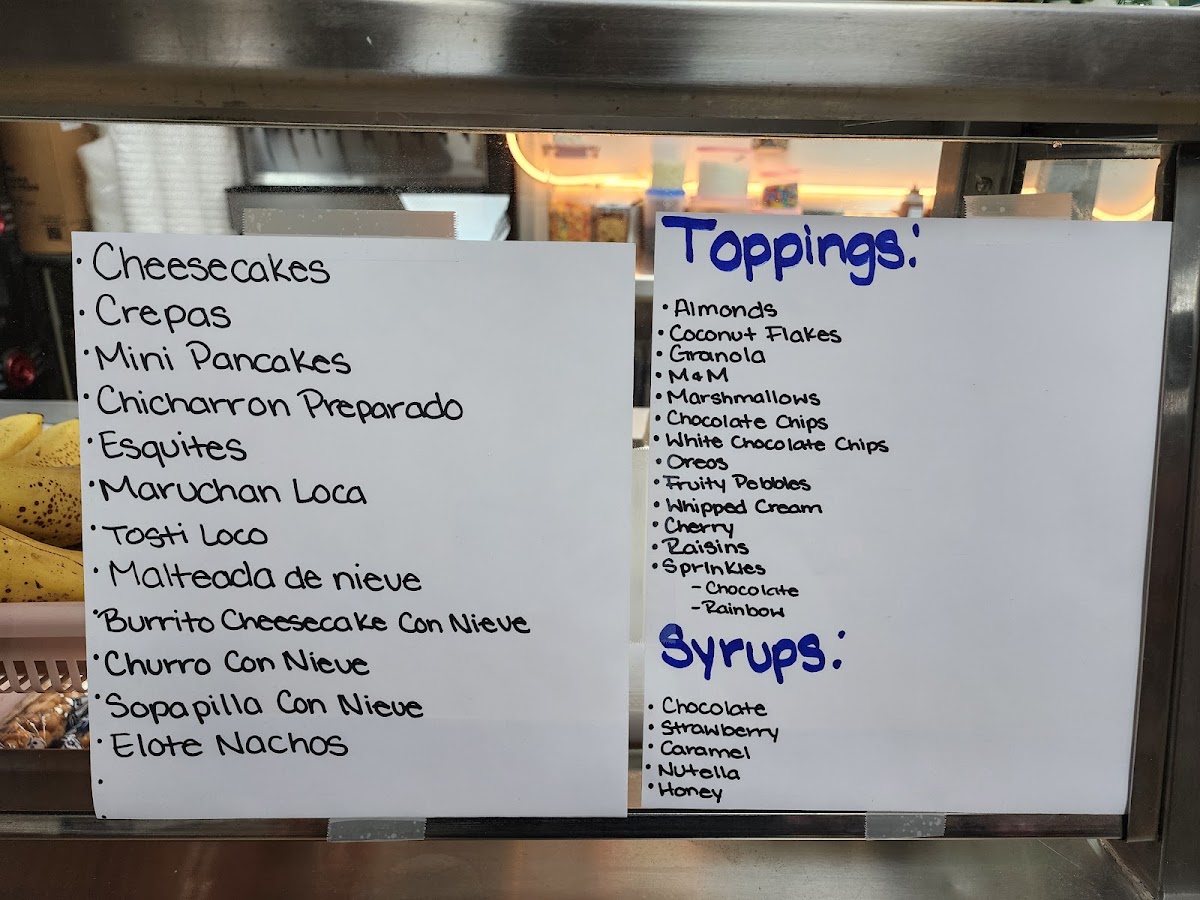 · Cheesecakes
· Crepas
· Mini Pancakes
· Chicharron Preparado
· Esquites
· Maruchan Loca
· Tosti Loco
· Malteada de nieve
· Burrito Cheesecake Con Nieve
· Churro Con Nieve
· Sopapilla Con Nieve
· Elote Nachos
Toppings:
· Almonds
· Coconut Flakes
· Granola
· M&M
· Marshmallows
· Chocolate Chips
· White Chocolate Chips
· Oreos
· Fruity Pebbles
· Whipped Cream
· Cherry
· Raisins
· Sprinkles
- Chocolate
- Rainbow
Syrups:
· Chocolate
· Strawberry
· Caramel
· Nutella
· Honey